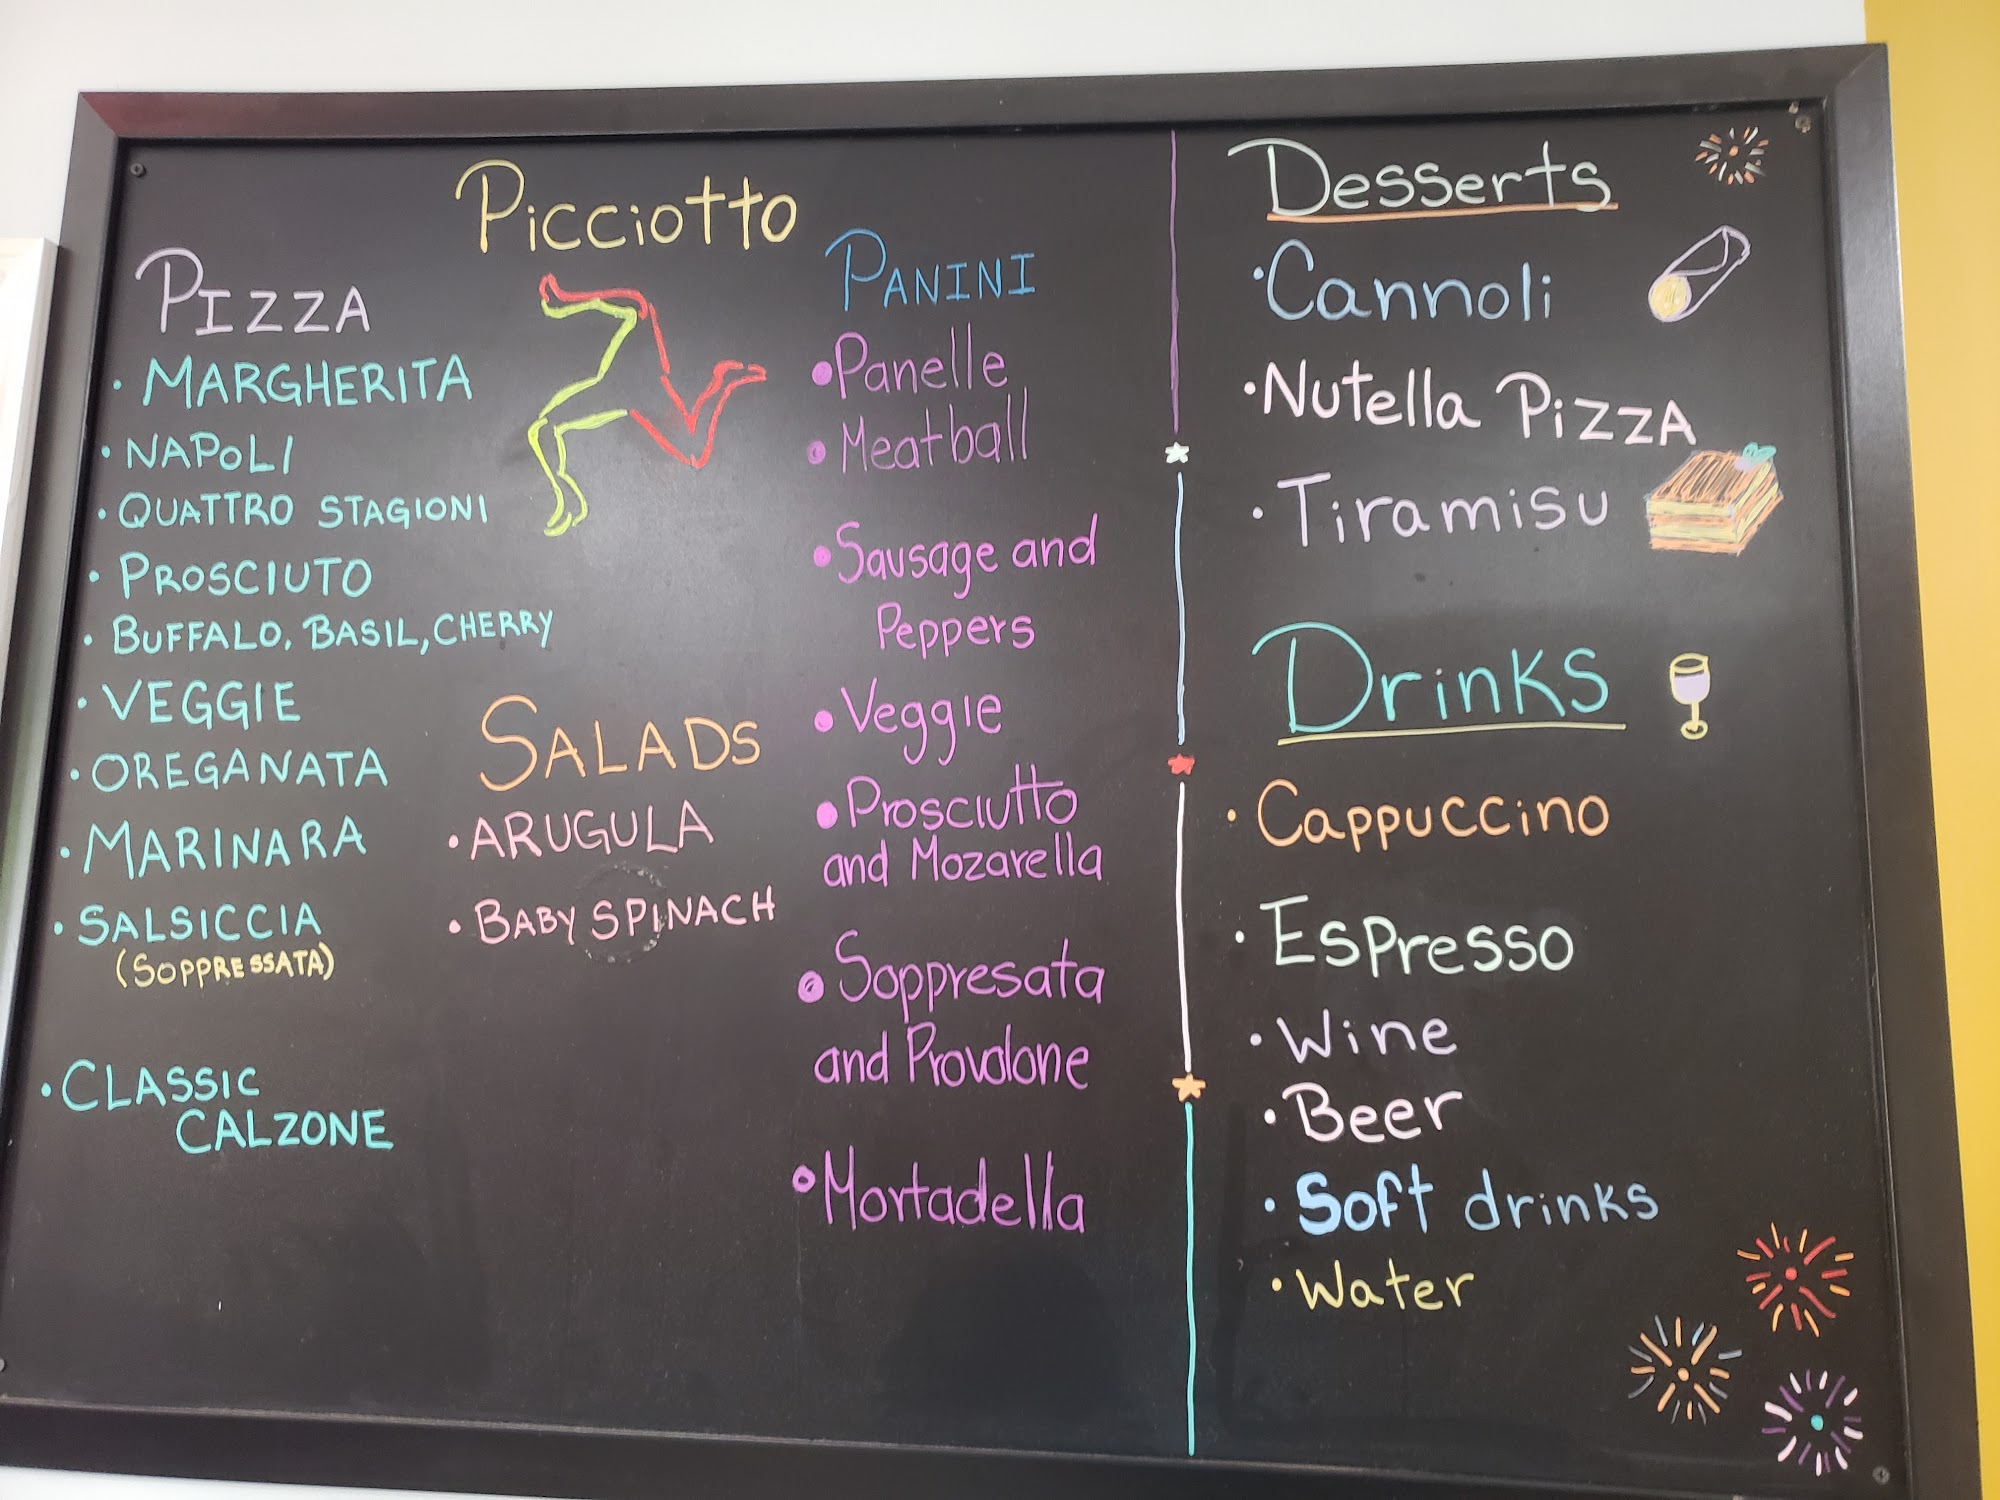 Picciotto
PIZZA
• MARGHERITA
• NAPOLI
• QUATTRO STAGIONI
• PROSCIUTO
• BUFFALO, BASIL, CHERRY
• VEGGIE
• OREGANATA
• MARINARA
• SALSICCIA
(SOPPRESSATA)
• CLASSIC
CALZONE
SALADS
• ARUGULA
• BABY SPINACH
PANINI
• Panelle
• Meatball
• Sausage and
Peppers
• Veggie
• Prosciutto
and Mozarella
• Soppresata
and Provolone
• Mortadella
Desserts
• Cannoli
• Nutella PIZZA
• Tiramisu
Drinks
• Cappuccino
• Espresso
• Wine
• Beer
• Soft drinks
• Water